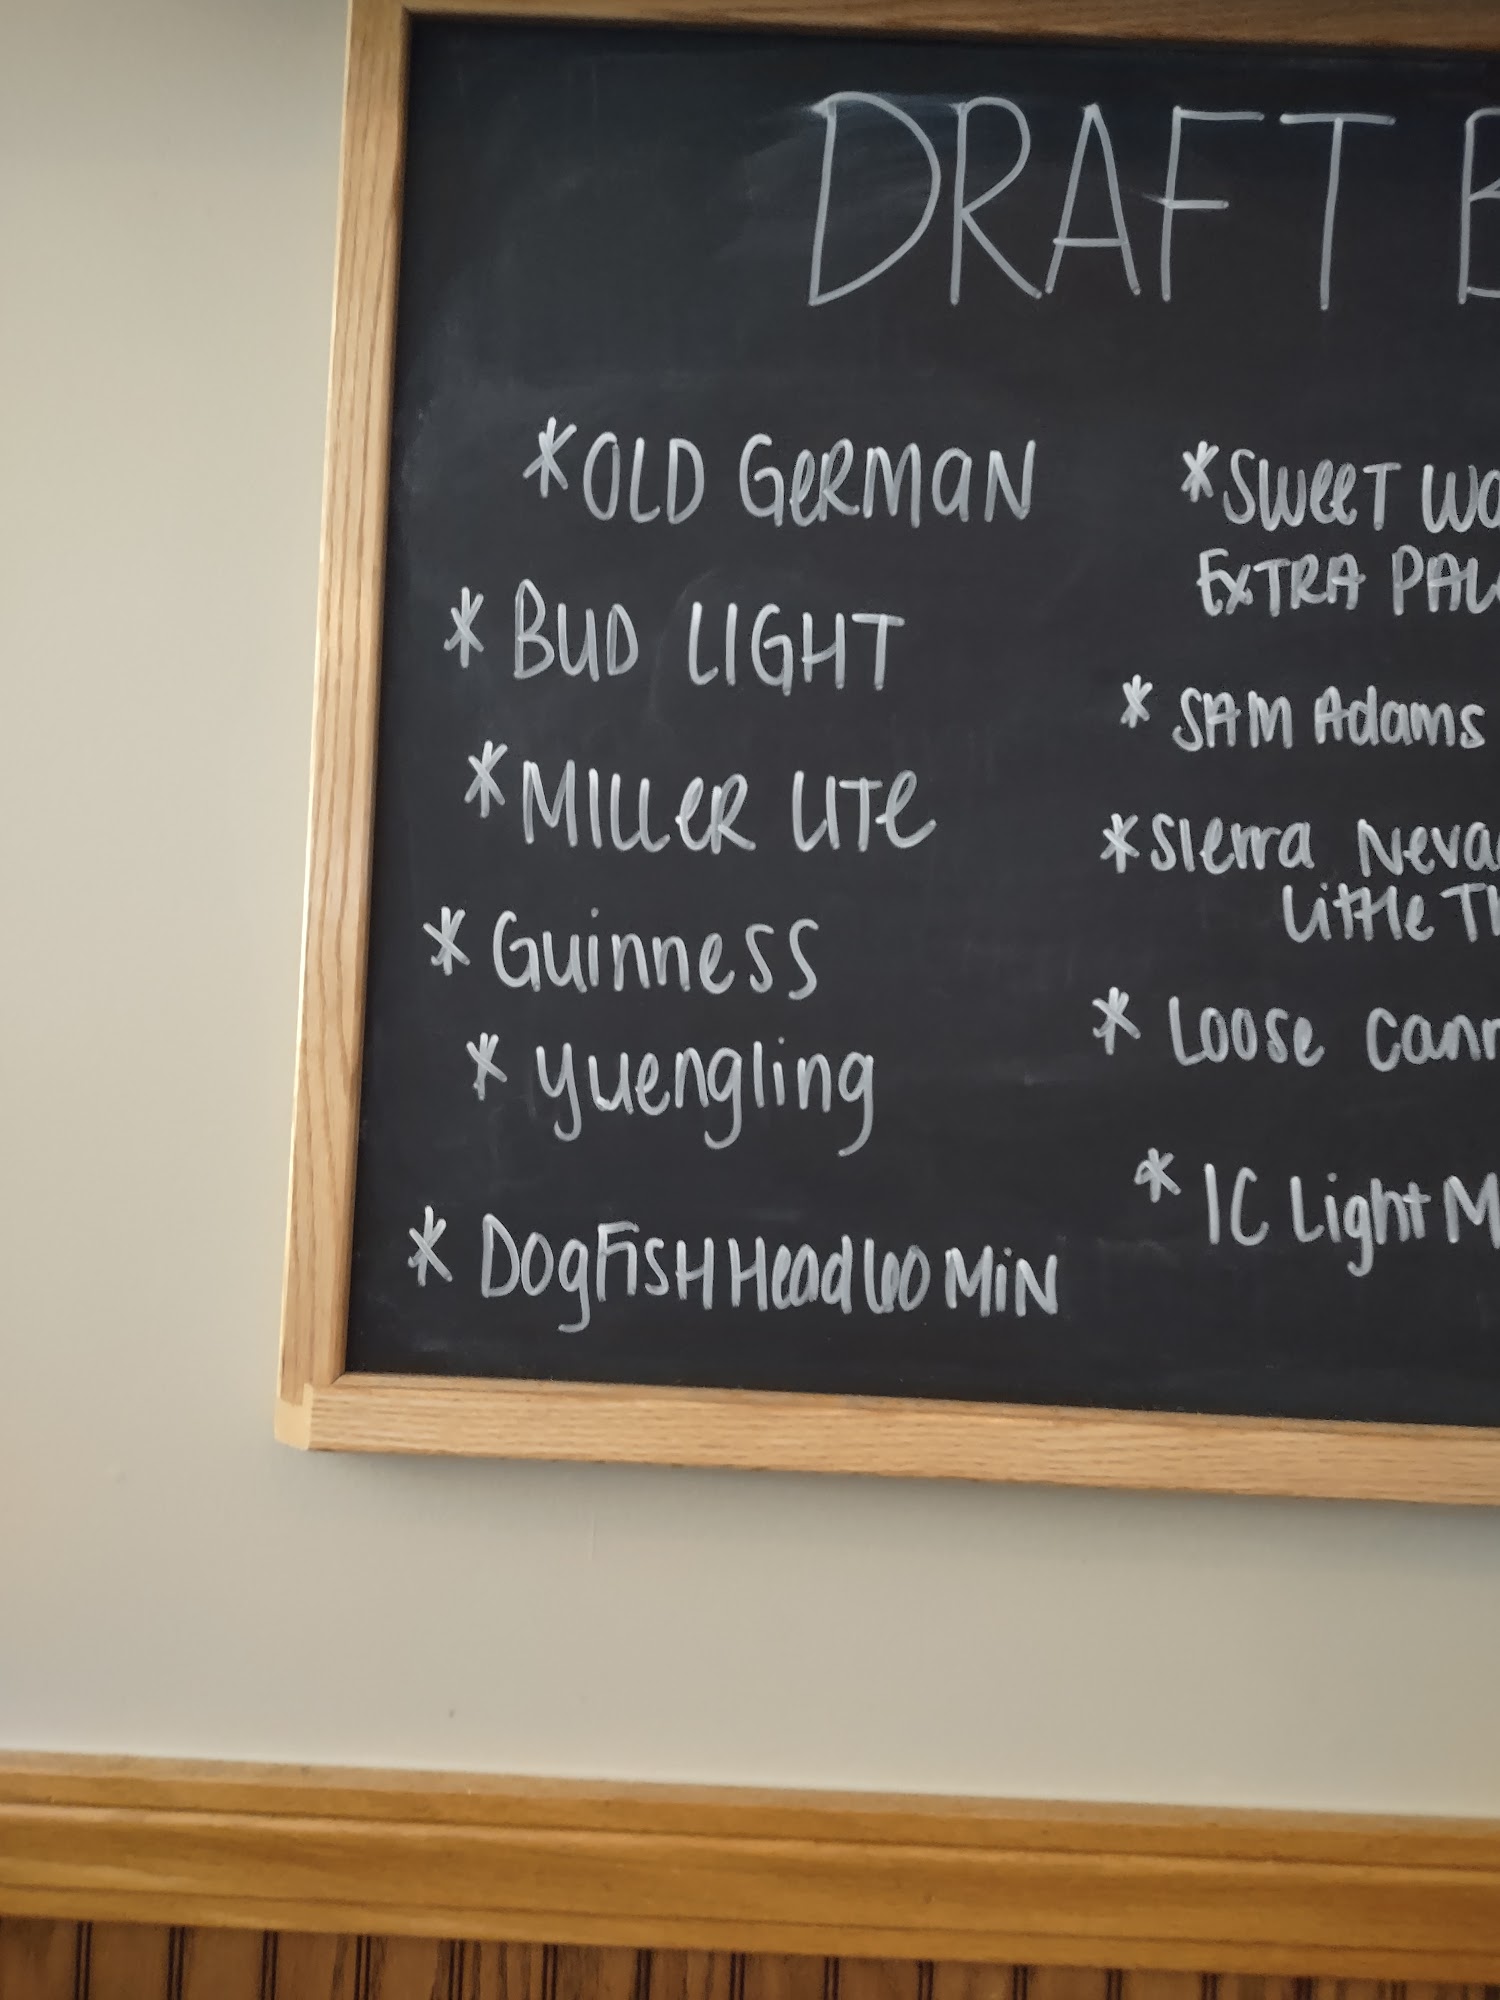 DRAFT B
*OLD GERMAN
* BUD LIGHT
*MILLER LITE
* Guinness
* Yuengling
* DogFISH Head 60 MIN
*SWEET WO
EXTRA PAL
* SAM Adams
*Sierra Neva
Little Th
* Loose Cann
* IC Light M